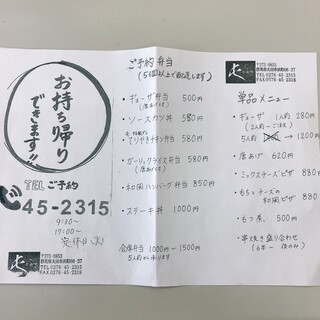 お持ち帰り
できます!!
TEL ご予約
45-2315
9:30~
17:00~
定休日(火)
〒373-0853
TEL 0276-45-2315
FAX 0276-45-2318
ご予約弁当
(5個以上で配達します)
・ギョーザ弁当 500円
(唐あげ付)
・ソースカツ丼 580円
・てりやきチキン弁当 580円
・ガーリックライス弁当 580円
(唐あげ付)
・和風ハンバーグ弁当 880円
・ステーキ丼 1000円
会席弁当 1000円~1500円
5人前から承ります
〒373-0853
TEL 0276-45-2315
FAX 0276-45-2318
単品メニュー
・ギョーザ 1人前 280円
(2人前~ご注文)
5人前 → 1200円
・唐あげ 620円
・ミックスチーズピザ 880円
・もちとチーズの
和風ピザ 880円
・もつ煮 500円
・串焼き盛り合わせ
(6本~ 夜のみ)